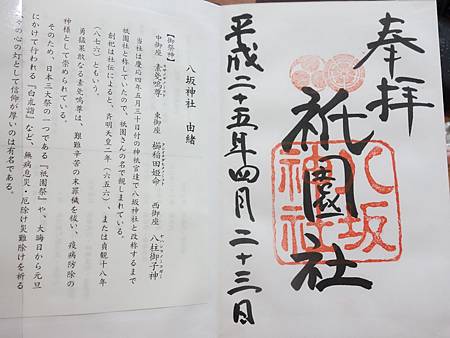 奉拝
八坂神社
祇園社
平成二十五年四月二十三日
八坂神社　由緒
【御祭神】
中御座　素戔嗚尊　東御座　櫛稲田姫命　西御座　八柱御子神
当社は慶応四年五月三十日付の神祇官達で八坂神社と改称するまで
祇園社と称していて、祇園さんの名で親しまれている。
創祀は社伝によると、斉明天皇二年（六五六）、または貞観十八年
（八七六）ともいう。
勇猛果敢なる素戔嗚尊は、艱難辛苦の末罪穢を祓い、疫病防除の
神様として崇められている。
そのため、日本三大祭の一つである『祇園祭』や、大晦日から元旦
にかけて行われる『白朮詣』など、無病息災・厄除け災難除けを祈る
心の灯として信仰が厚いのは有名である。